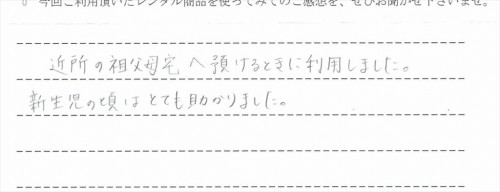 今回ご利用頂いたレンタル商品を使ってみてのご感想を、ぜひお聞かせ下さいませ。
近所の祖父母宅へ預けるときに利用しました。
新生児の頃はとても助かりました。